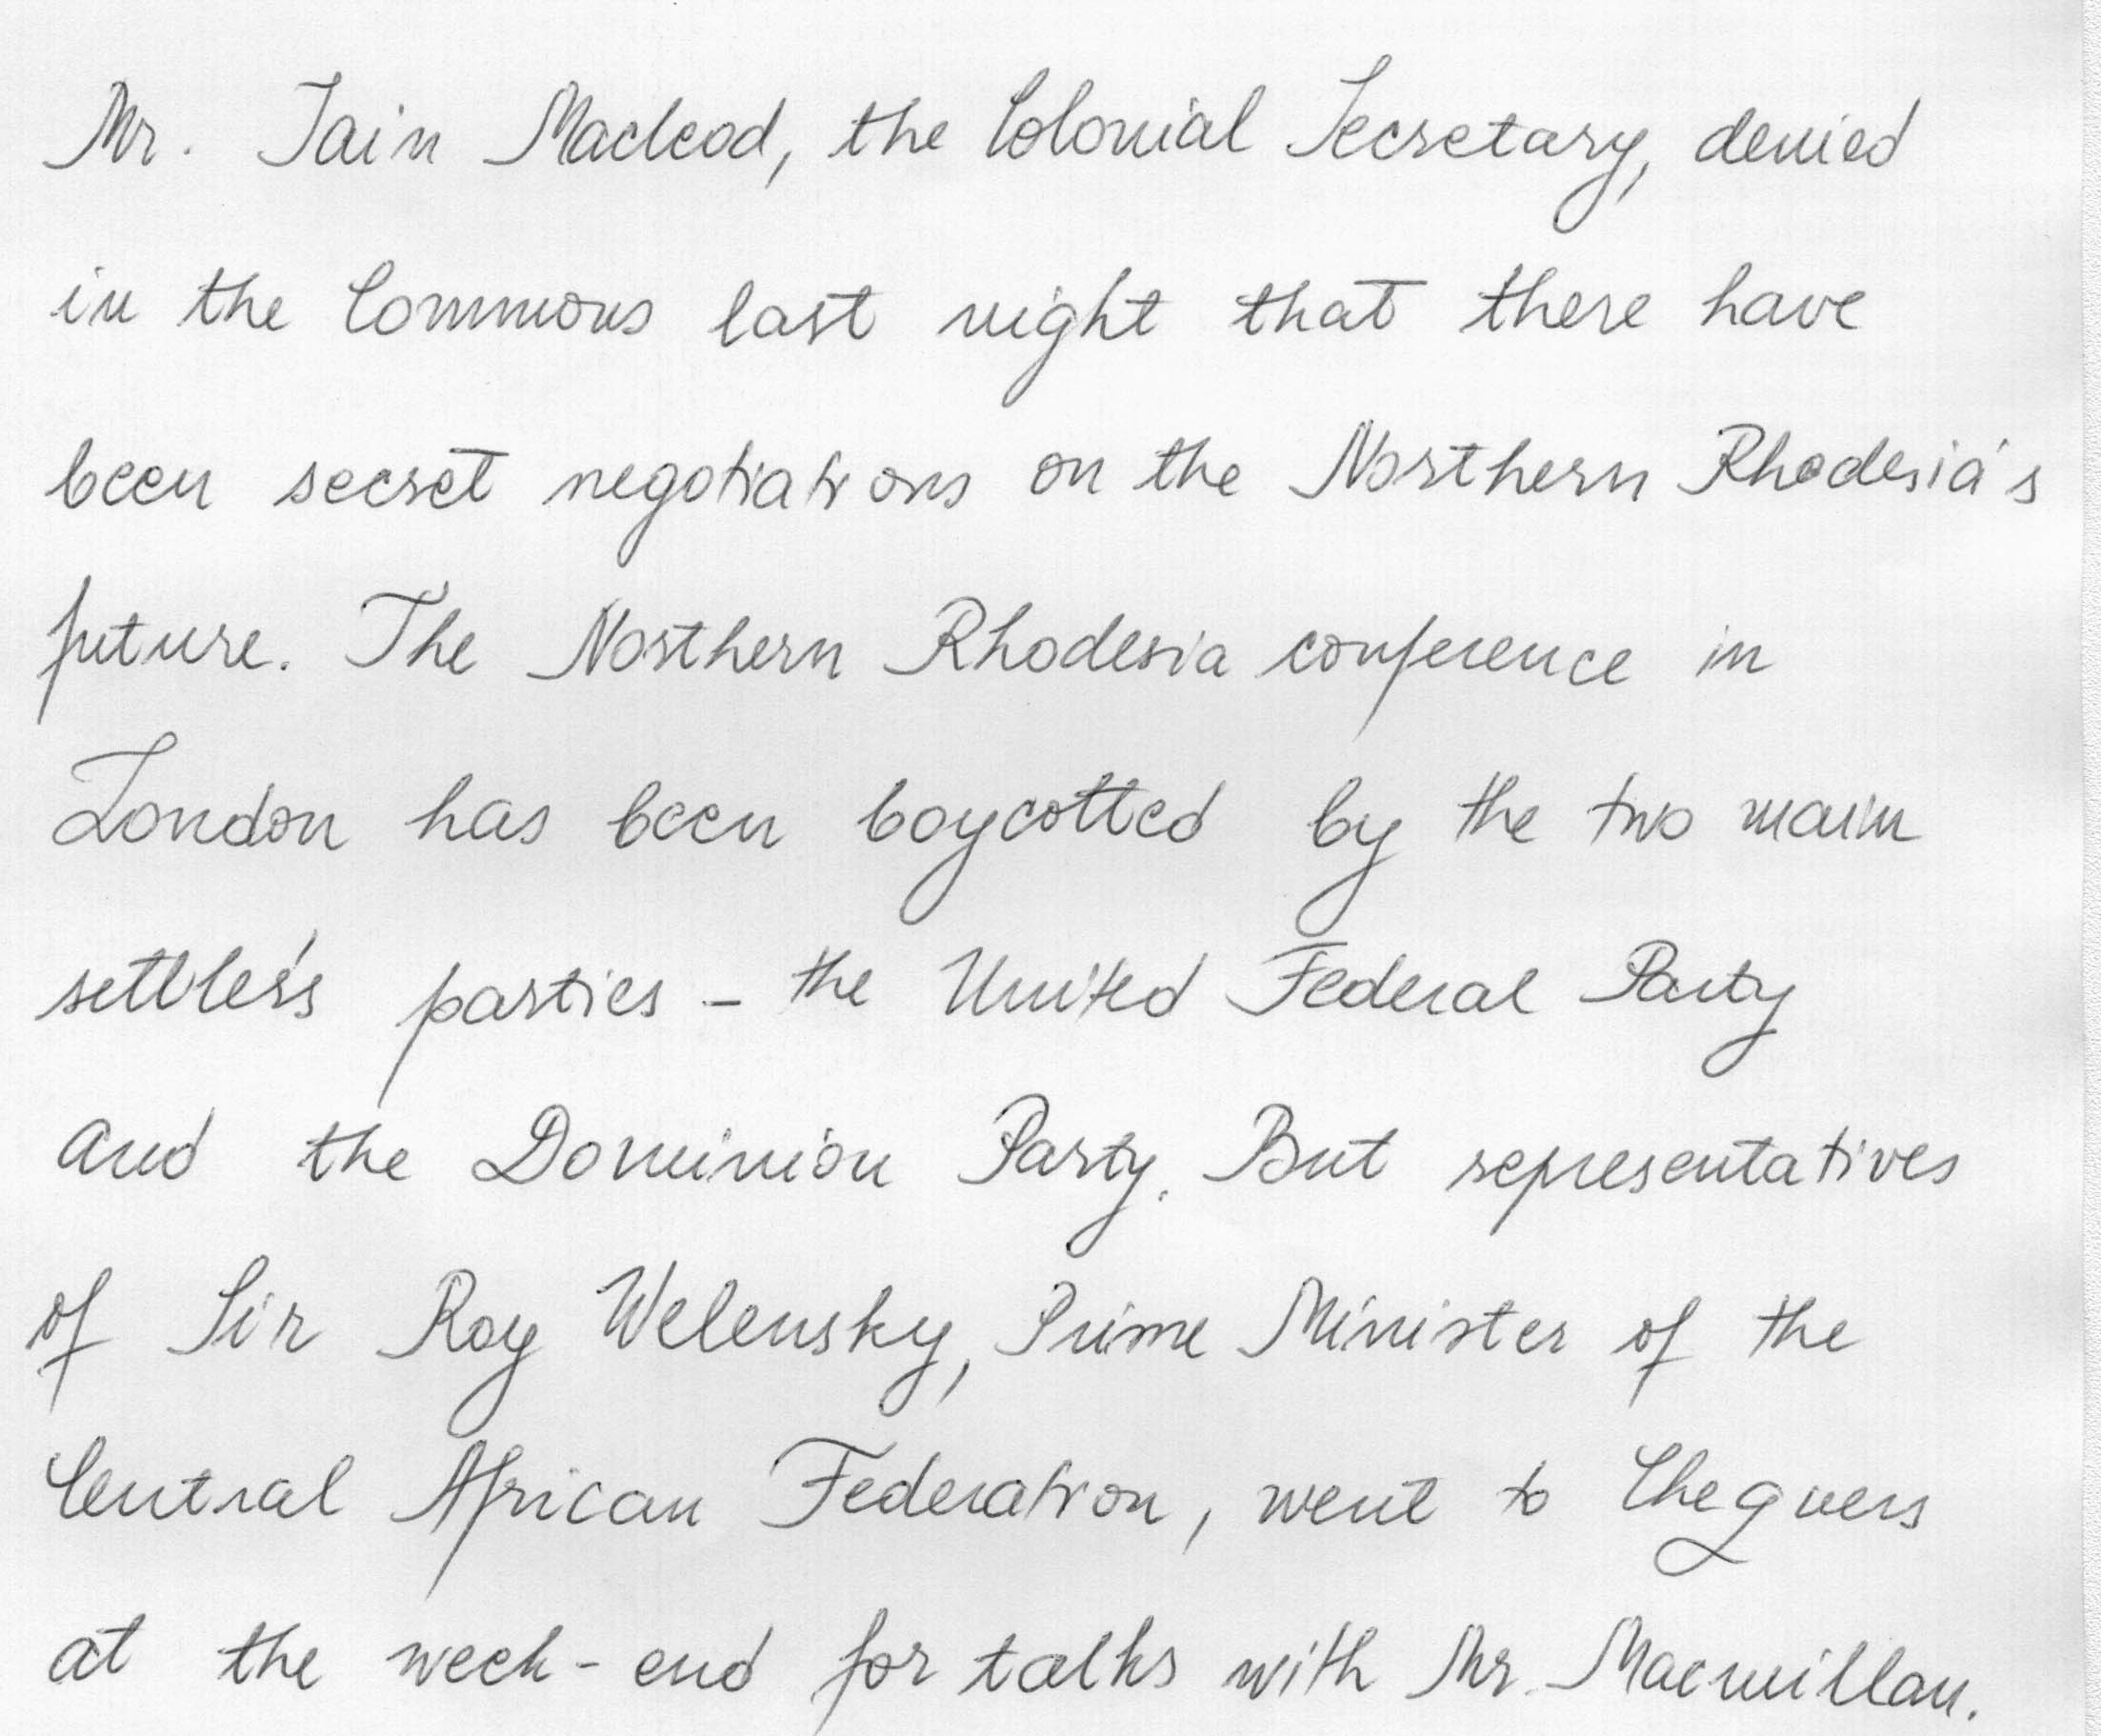 Mr. Iain Macleod, the Colonial Secretary, denied
in the Commons last night that there have
been secret negotiations on the Northern Rhodesia's
future. The Northern Rhodesia conference in
London has been boycotted by the two main
settlers's parties - the United Federal Party
and the Dominion Party. But representatives
of Sir Roy Welensky, Prime Minister of the
Central African Federation, went to Chequers
at the week-end for talks with Mr. Macmillan.